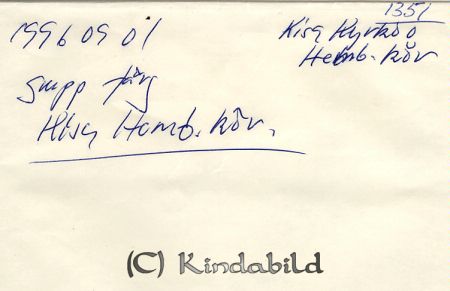 1351
1996 09 01
Kisa Kyrko o
Hemb. kör
Grupp färg
Kisa Hemb. kör.
(C) Kindabild